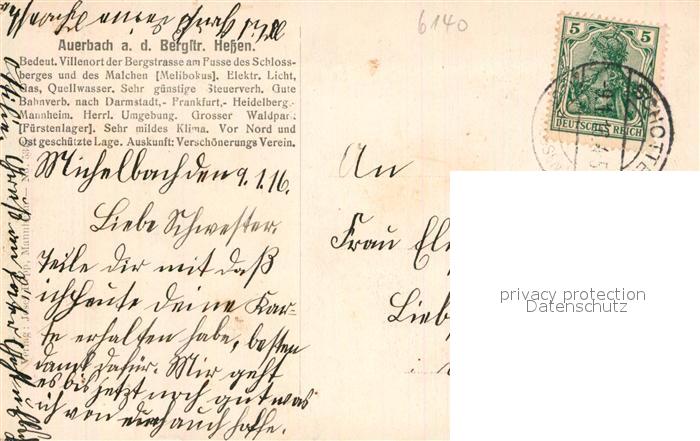 6140
Auerbach a. d. Bergstr. Heßen.
Bedeut. Villenort der Bergstrasse am Fusse des Schloss-
berges und des Malchen [Melibokus]. Elektr. Licht,
Gas, Quellwasser. Sehr günstige Steuerverh. Gute
Bahnverb. nach Darmstadt,- Frankfurt,- Heidelberg-
Mannheim. Herrl. Umgebung. Grosser Waldpark
[Fürstenlager]. Sehr mildes Klima. Vor Nord und
Ost geschützte Lage. Auskunft: Verschönerungs Verein.
Michelbach den 9.1.16.
Liebe Schwester.
Teile dir mit daß
ich heute deine Kar-
te erhalten habe, besten
dank dafür. Mir geht
es bis jetzt noch gut was
ich von euch auch hoffe.
An
Frau El
Lieb
5 5
DEUTSCHES REICH
SCHOTTE
privacy protection
Datenschutz